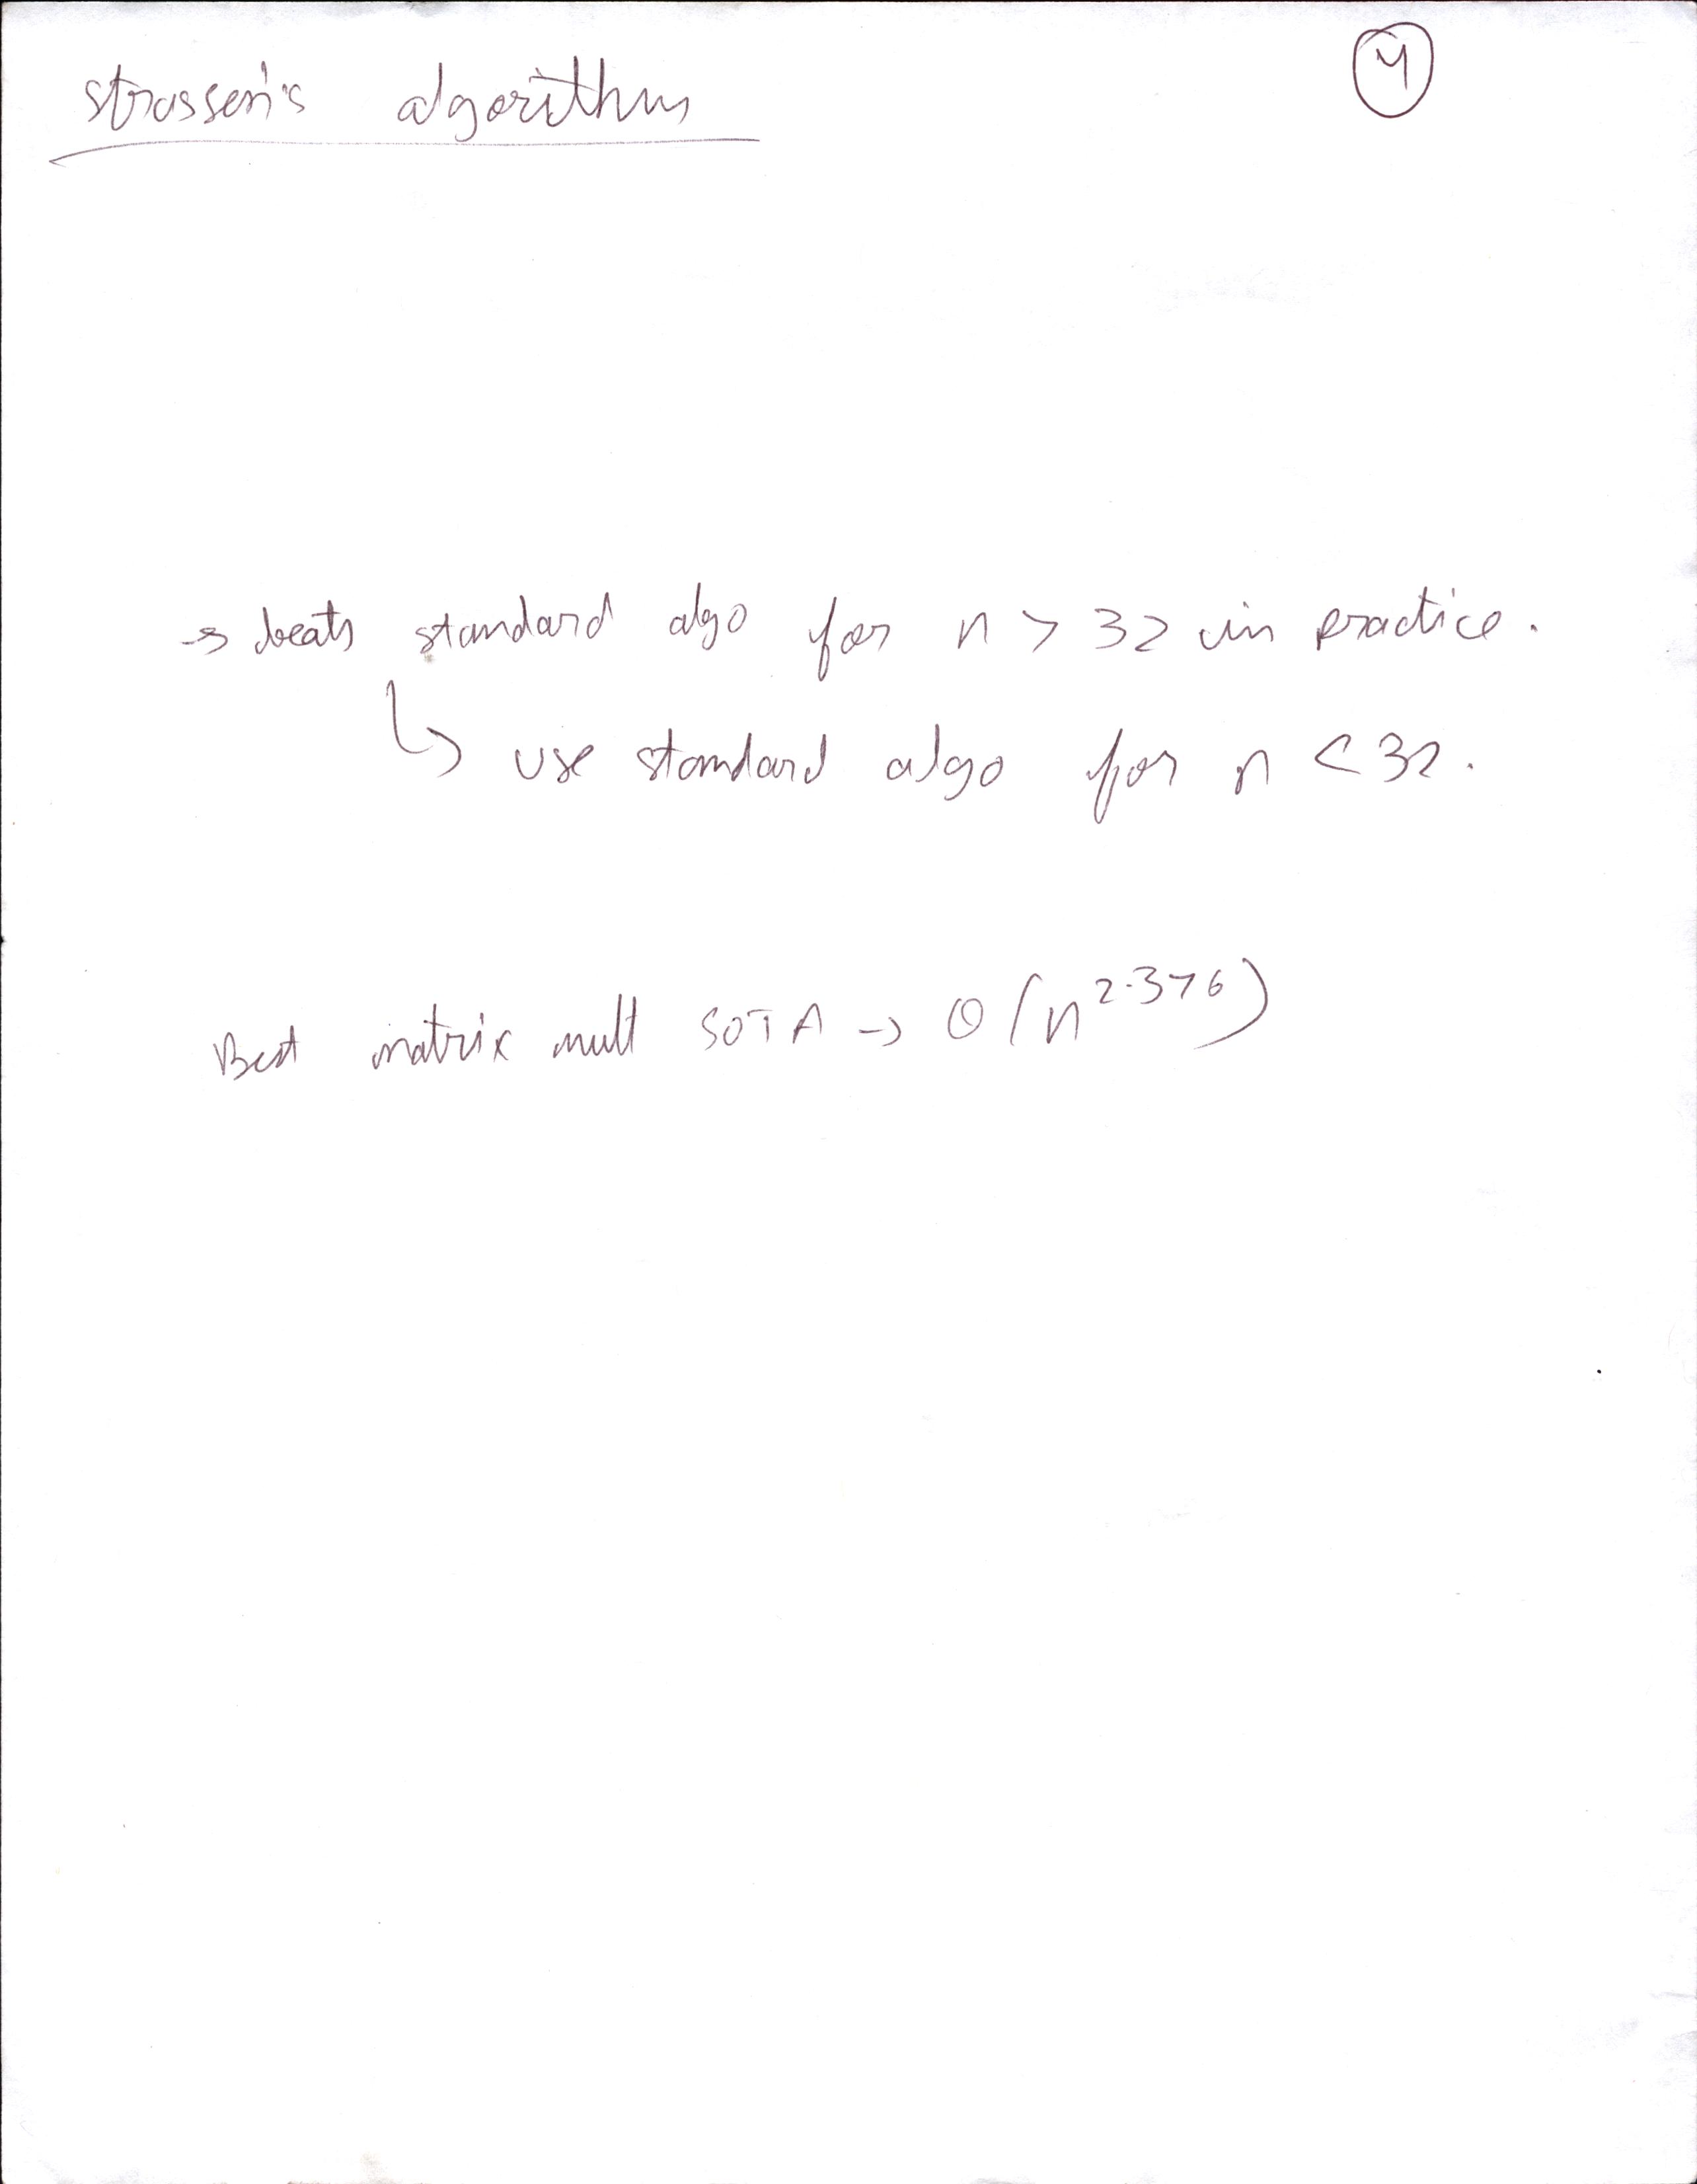 strassen's algorithm
4
→ beats standard algo for n > 32 in practice.
↳ use standard algo for n < 32.
Best matrix mult SOTA → O(n^2.376)